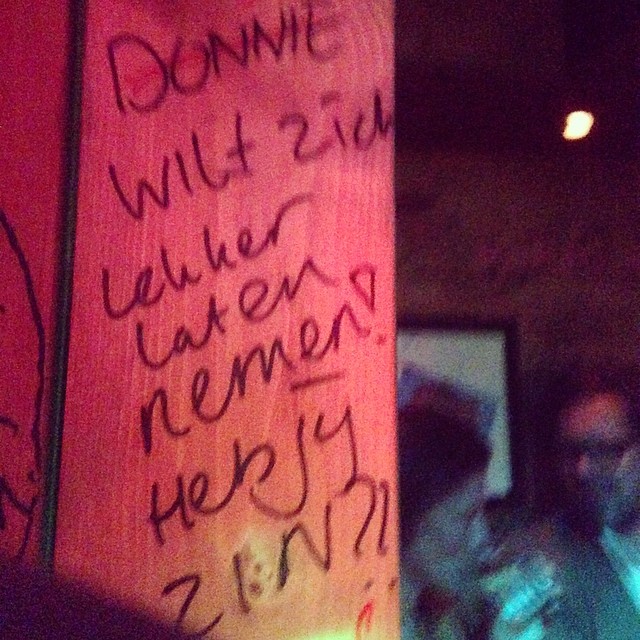 DONNIE
WILt zich
lekker
laten
nemen!
Hebjy
ZIN?!